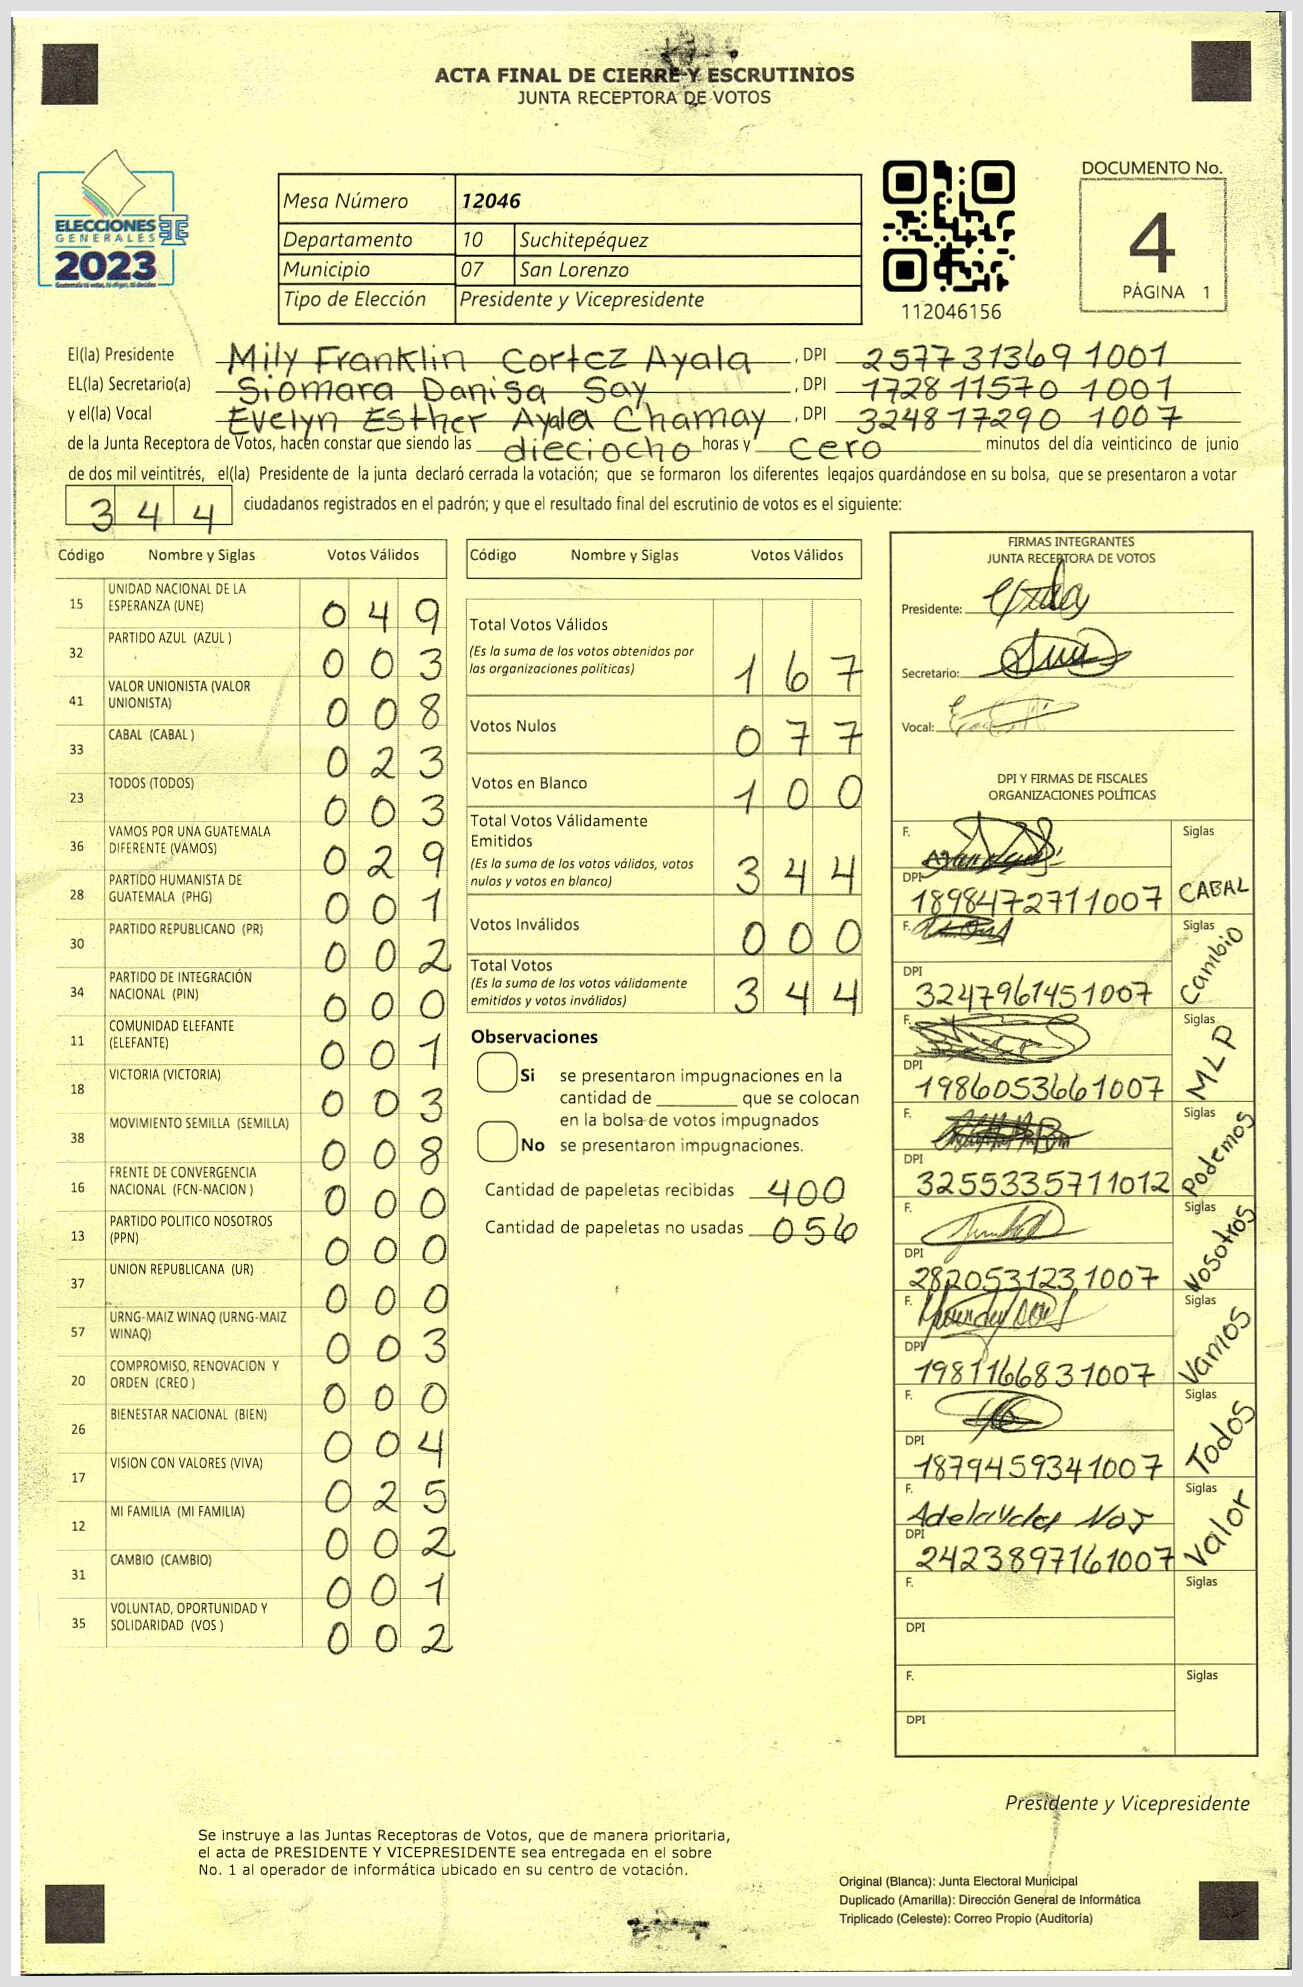 ACTA FINAL DE CIERRE Y ESCRUTINIOS
JUNTA RECEPTORA DE VOTOS
ELECCIONES
GENERALES
2023
Mesa Número 12046
Departamento 10 Suchitepéquez
Municipio 07 San Lorenzo
Tipo de Elección Presidente y Vicepresidente
112046156
DOCUMENTO No.
4
PÁGINA 1
El(la) Presidente Mily Franklin Cortez Ayala, DPI 257731369 1001
EL(la) Secretario(a) Siomara Danisa Say, DPI 172811570 1001
y el(la) Vocal Evelyn Esther Ayala Chamay, DPI 324817290 1007
de la Junta Receptora de Votos, hacen constar que siendo las dieciocho horas y cero minutos del día veinticinco de junio
de dos mil veintitrés, el(la) Presidente de la junta declaró cerrada la votación; que se formaron los diferentes legajos quardándose en su bolsa, que se presentaron a votar
344 ciudadanos registrados en el padrón; y que el resultado final del escrutinio de votos es el siguiente:
Código Nombre y Siglas Votos Válidos
15 UNIDAD NACIONAL DE LA ESPERANZA (UNE) 049
32 PARTIDO AZUL (AZUL ) 003
41 VALOR UNIONISTA (VALOR UNIONISTA) 008
33 CABAL (CABAL ) 023
23 TODOS (TODOS) 003
36 VAMOS POR UNA GUATEMALA DIFERENTE (VAMOS) 029
28 PARTIDO HUMANISTA DE GUATEMALA (PHG) 001
30 PARTIDO REPUBLICANO (PR) 002
34 PARTIDO DE INTEGRACIÓN NACIONAL (PIN) 000
11 COMUNIDAD ELEFANTE (ELEFANTE) 001
18 VICTORIA (VICTORIA) 003
38 MOVIMIENTO SEMILLA (SEMILLA) 008
16 FRENTE DE CONVERGENCIA NACIONAL (FCN-NACION ) 000
13 PARTIDO POLITICO NOSOTROS (PPN) 000
37 UNION REPUBLICANA (UR) 000
57 URNG-MAIZ WINAQ (URNG-MAIZ WINAQ) 003
20 COMPROMISO, RENOVACION Y ORDEN (CREO ) 000
26 BIENESTAR NACIONAL (BIEN) 004
17 VISION CON VALORES (VIVA) 025
12 MI FAMILIA (MI FAMILIA) 002
31 CAMBIO (CAMBIO) 001
35 VOLUNTAD, OPORTUNIDAD Y SOLIDARIDAD (VOS ) 002
Código Nombre y Siglas Votos Válidos
Total Votos Válidos
(Es la suma de los votos obtenidos por
las organizaciones políticas) 167
Votos Nulos 077
Votos en Blanco 100
Total Votos Válidamente
Emitidos
(Es la suma de los votos válidos, votos
nulos y votos en blanco) 344
Votos Inválidos 000
Total Votos
(Es la suma de los votos válidamente
emitidos y votos inválidos) 344
Observaciones
Si se presentaron impugnaciones en la
cantidad de ________ que se colocan
en la bolsa de votos impugnados
No se presentaron impugnaciones.
Cantidad de papeletas recibidas 400
Cantidad de papeletas no usadas 056
FIRMAS INTEGRANTES
JUNTA RECEPTORA DE VOTOS
Presidente:
Secretario:
Vocal:
DPI Y FIRMAS DE FISCALES
ORGANIZACIONES POLÍTICAS
F. Siglas
DPI 1898472711007 CABAL
F. Siglas
DPI 3247961451007 Cambio
F. Siglas
DPI 1986053661007 MLP
F. Siglas
DPI 3255335711012 Podemos
F. Siglas
DPI 2820531231007 Nosotros
F. Siglas
DPI 1981166831007 Vamos
F. Siglas
DPI 1879459341007 Todos
F. Siglas
DPI 2423897161007 Valor
F. Siglas
DPI
F. Siglas
DPI
Presidente y Vicepresidente
Se instruye a las Juntas Receptoras de Votos, que de manera prioritaria,
el acta de PRESIDENTE Y VICEPRESIDENTE sea entregada en el sobre
No. 1 al operador de informática ubicado en su centro de votación.
Original (Blanca): Junta Electoral Municipal
Duplicado (Amarilla): Dirección General de Informática
Triplicado (Celeste): Correo Propio (Auditoría)